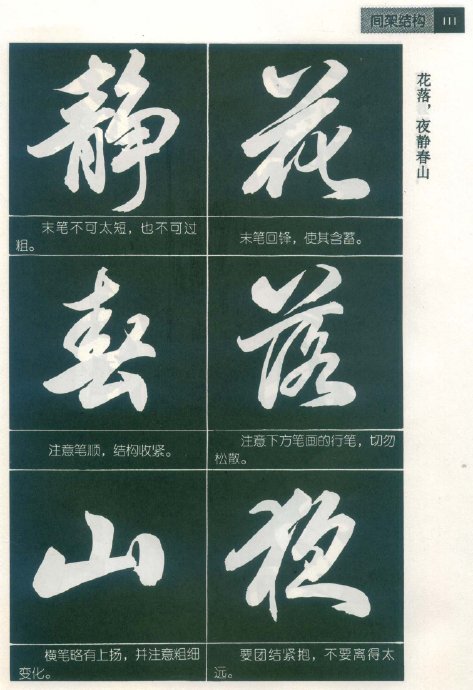 间架结构 111
花落，夜静春山
花
末笔回锋，使其含蓄。
落
注意下方笔画的行笔，切勿
松散。
夜
要团结紧抱，不要离得太
远。
静
末笔不可太短，也不可过
粗。
春
注意笔顺，结构收紧。
山
横笔略有上扬，并注意粗细
变化。